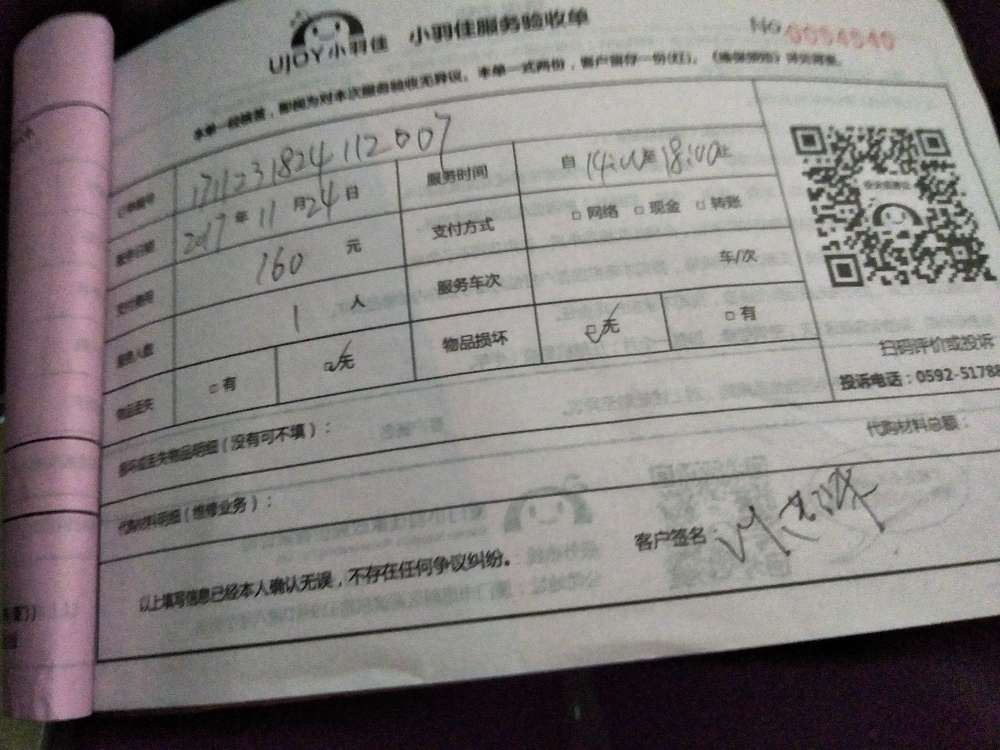 UJOY小羽佳 小羽佳服务验收单 No 0054540
本单一经签署，即视为对本次服务验收无异议。本单一式两份，客户留存一份(红)。
订单编号 1711231824112007
服务日期 2017年11月24日 服务时间 自14:00至18:00止
支付费用 160元 支付方式 □网络 □现金 □转账
服务人数 1人 服务车次 车/次
物品丢失 □有 ☑无 物品损坏 ☑无 □有
损坏或丢失物品明细（没有可不填）：
代购材料明细（维修业务）： 代购材料总额：
以上填写信息已经本人确认无误，不存在任何争议纠纷。 客户签名：
扫码评价或投诉
投诉电话：0592-51788